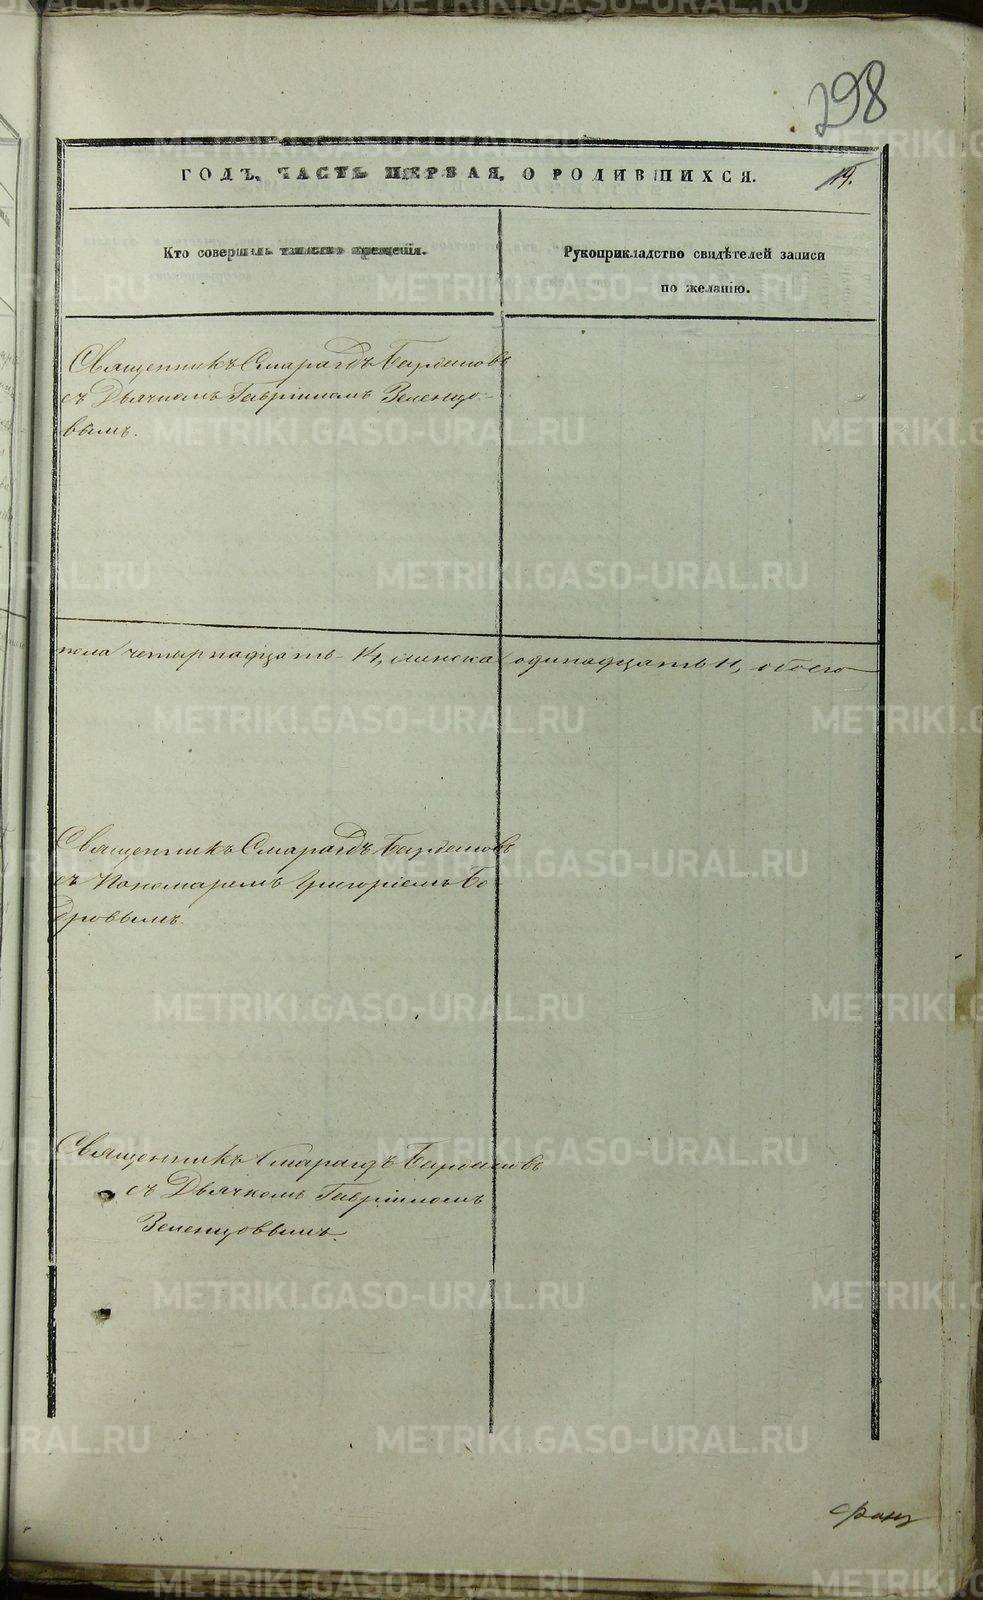 298
ГОДЪ, ЧАСТЬ ПЕРВАЯ, О РОДИВШИХСЯ.
14.
Кто совершалъ таинство крещенія.
Рукоприкладство свидѣтелей записи
по желанію.
Священникъ Смарагдъ
съ Дьячкомъ Гавріиломъ Зеленцо-
вымъ.
пола четырнадцать 14, женска одинадцать 11, обоего
Священникъ Смарагдъ
съ Пономаремъ Григоріемъ Бо-
дровымъ.
Священникъ Смарагдъ
съ Дьячкомъ Гавріиломъ
Зеленцовымъ.
METRIKI.GASO-URAL.RU